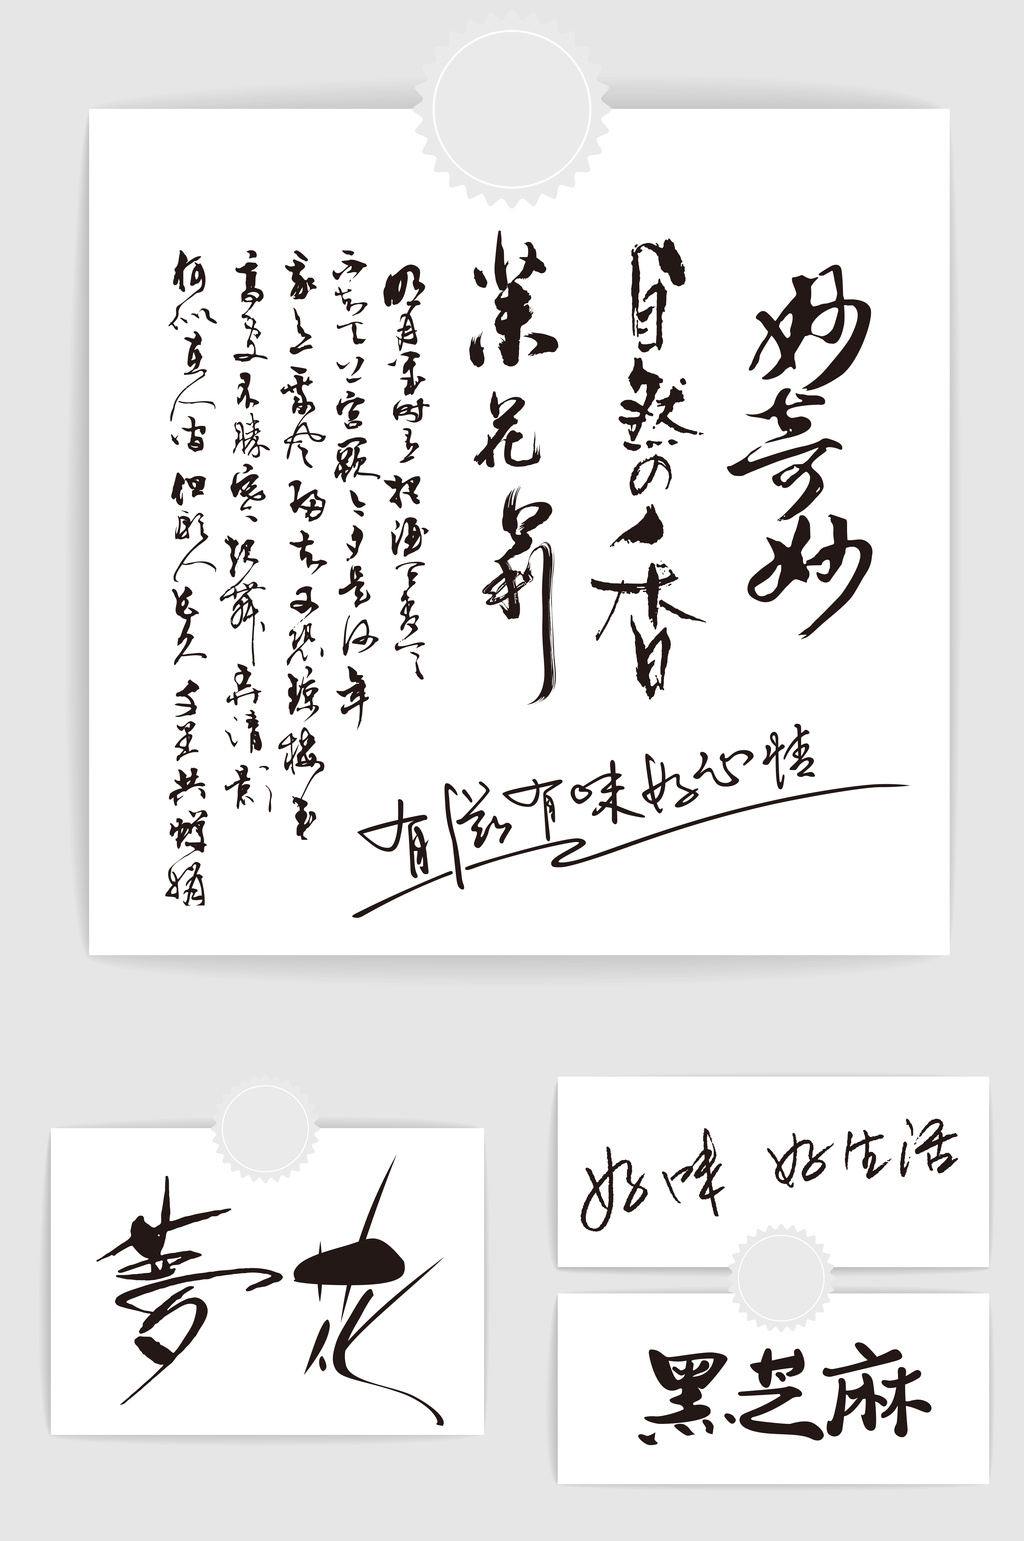 妙奇妙
自然の香
茉花莉
明月幾时有把酒问青天
不知天上宫阙今夕是何年
我欲乘风归去又恐琼楼玉
高处不胜寒起舞弄清影
何似在人间但愿人长久千里共婵娟
有滋有味好心情
夢花
好味 好生活
黑芝麻